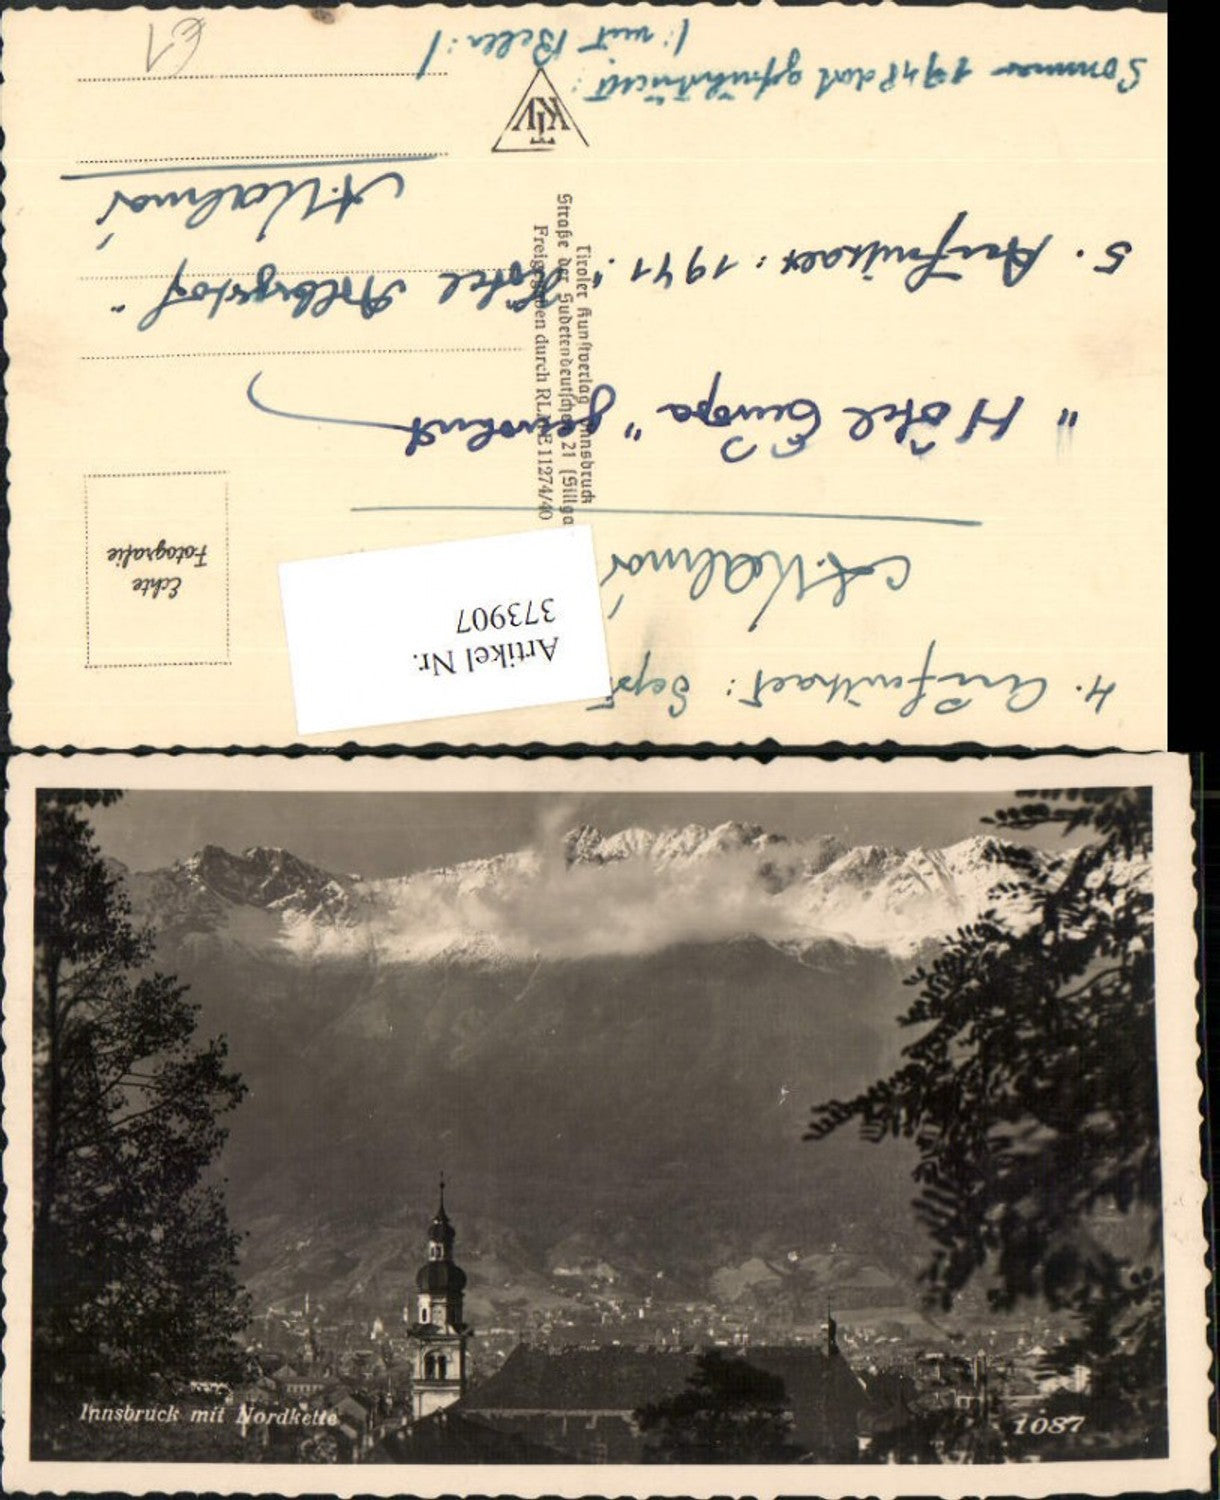 4. Aufenthalt: Sept
A. Kalmár
"Hôtel Europa" gewohnt
5. Aufenthalt: 1941: "Hôtel Arlbergerhof"
A. Kalmár
Sommer 1948 dort gefrühstückt:
/: mit Bella :/
€1
Artikel Nr.
373907
Echte
Fotografie
Tiroler Kunstverlag Innsbruck
Straße der Sudetendeutschen 21 (Sillga
Freigegeben durch RLM E 11274/40
KTV
Innsbruck mit Nordkette
1087